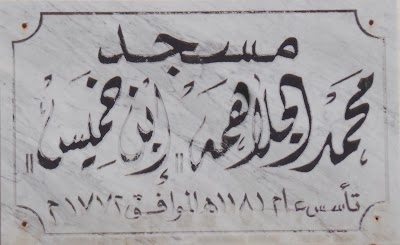 مسجد
محمد الجلاهمه "إبن خميس"
تأسس عام ١١٨١ه الموافق ١٧٧٢م